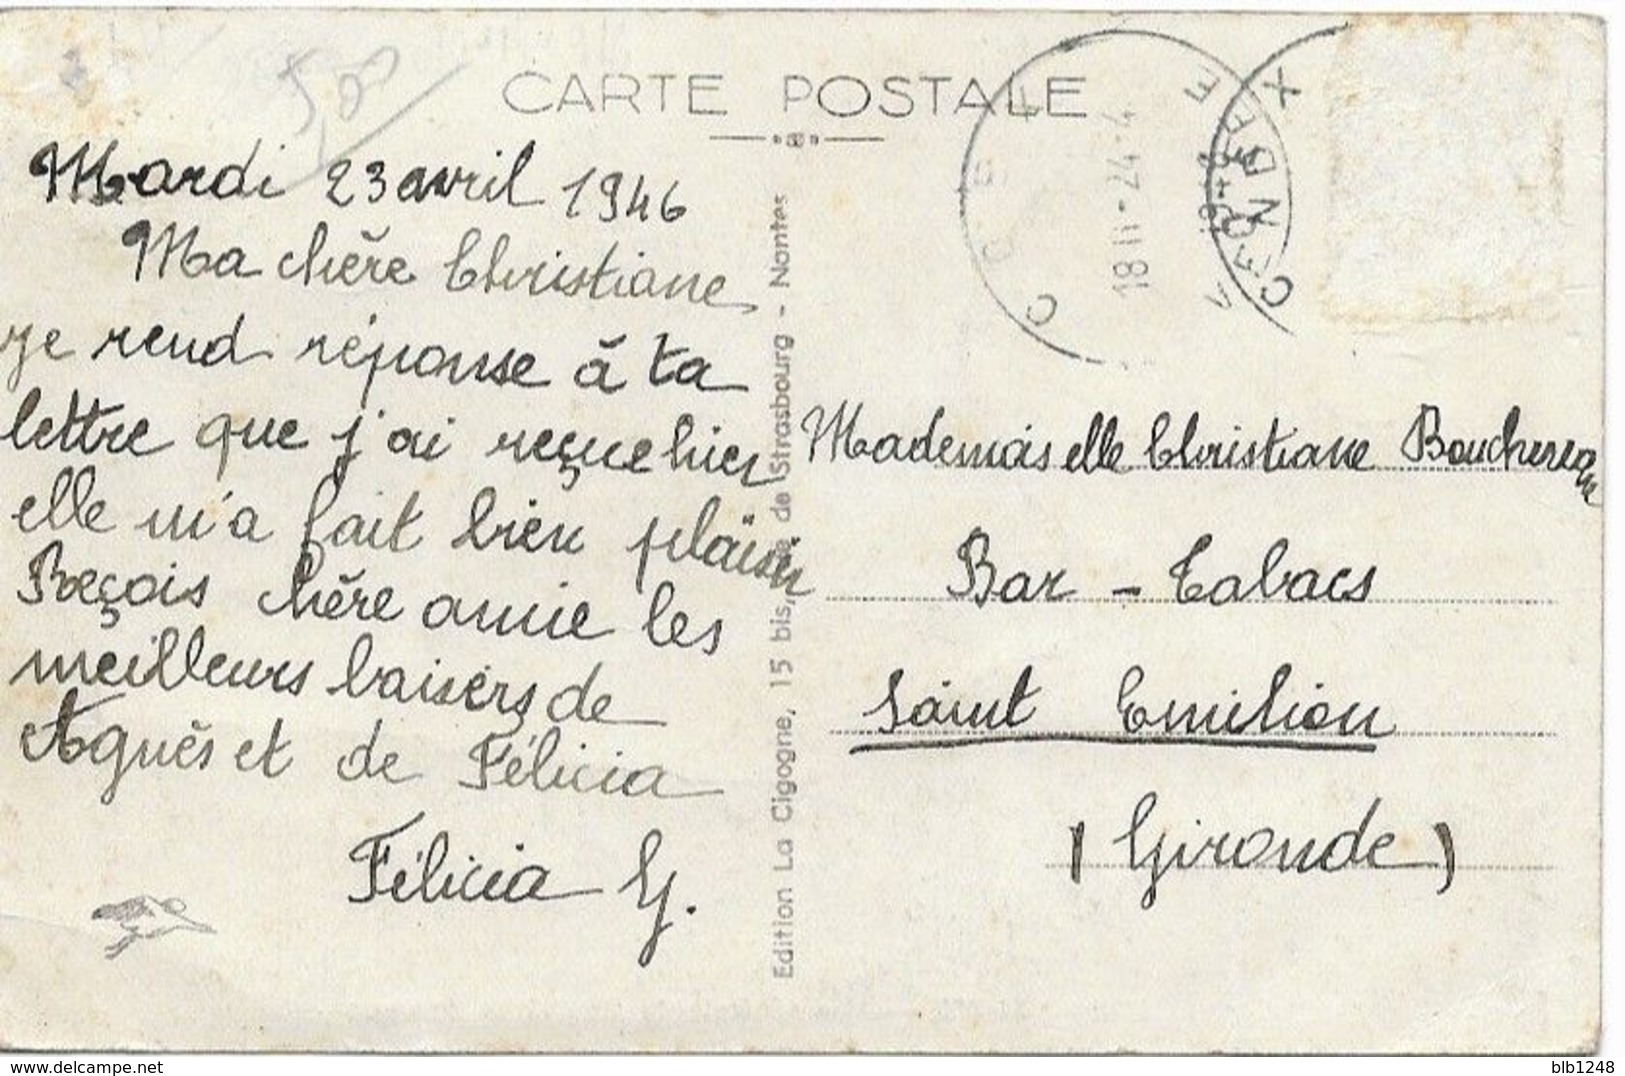 CARTE POSTALE
Mardi 23 avril 1946
Ma chère Christiane
je rend réponse à ta
lettre que j'ai reçue hier
elle m'a fait bien plaisir
Reçois chère amie les
meilleurs baisers de
Agnès et de Félicia
Félicia G.
Edition La Cigogne, 15 bis, de Strasbourg - Nantes
18 H - 24-4
Mademoiselle Christiane Bouchereau
Bar - Tabacs
Saint Emilion
(Gironde)
blb1248